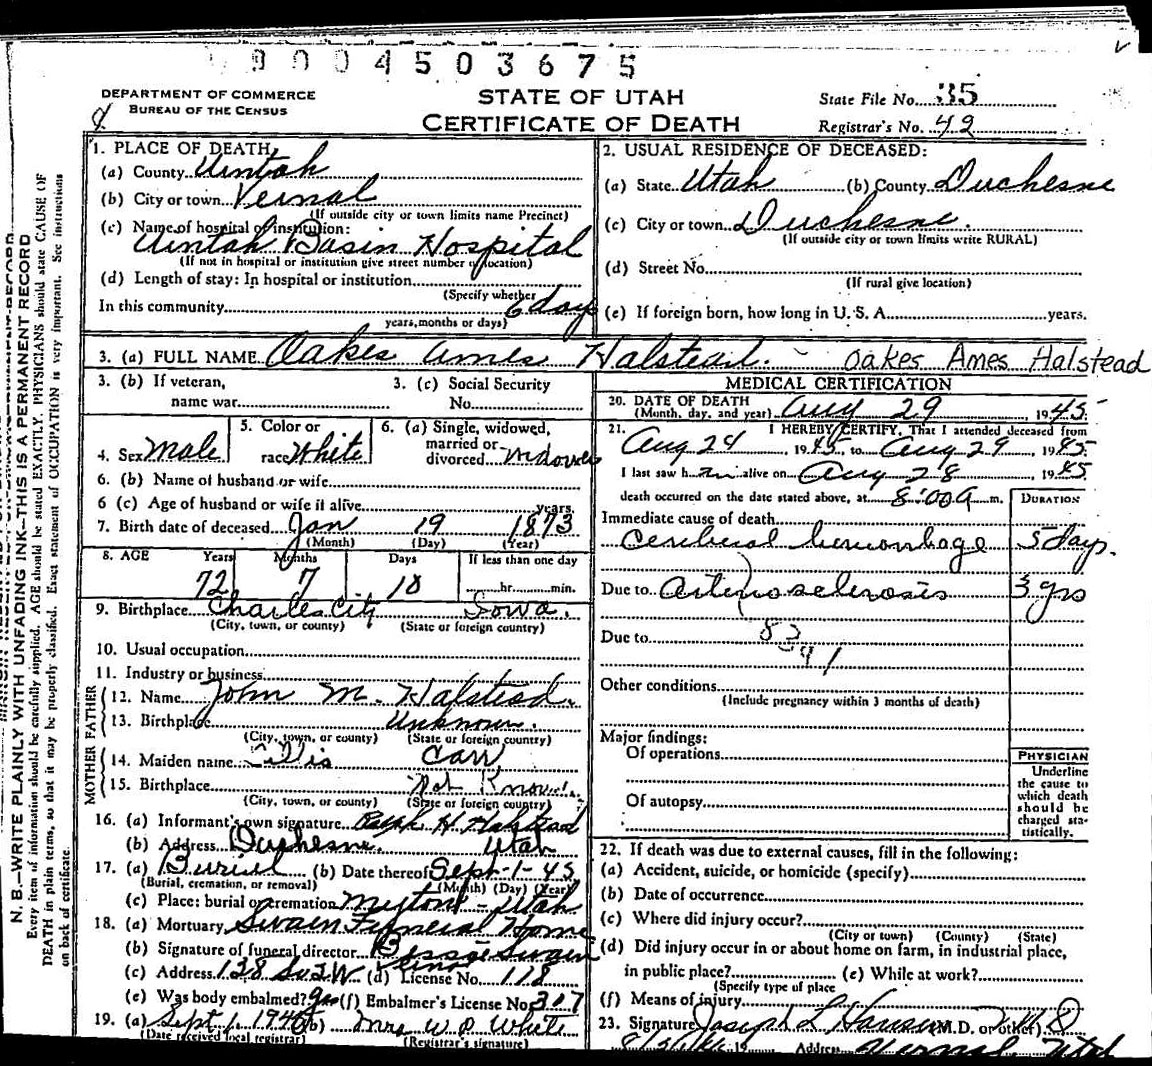 0004503675
DEPARTMENT OF COMMERCE
BUREAU OF THE CENSUS
STATE OF UTAH
CERTIFICATE OF DEATH
State File No. 35
Registrar's No. 42
N. B.—WRITE PLAINLY WITH UNFADING INK—THIS IS A PERMANENT RECORD
Every item of information should be carefully supplied. AGE should be stated EXACTLY. PHYSICIANS should state CAUSE OF
DEATH in plain terms, so that it may be properly classified. Exact statement of OCCUPATION is very important. See instructions
on back of certificate.
1. PLACE OF DEATH
(a) County Uintah
(b) City or town Vernal
(If outside city or town limits name Precinct)
(c) Name of hospital or institution:
Uintah Basin Hospital
(If not in hospital or institution give street number or location)
(d) Length of stay: In hospital or institution
(Specify whether
In this community 6 days
years, months or days)
2. USUAL RESIDENCE OF DECEASED:
(a) State Utah (b) County Duchesne
(c) City or town Duchesne.
(If outside city or town limits write RURAL)
(d) Street No.
(If rural give location)
(e) If foreign born, how long in U. S. A. years.
3. (a) FULL NAME Oakes Ames Halstead. - Oakes Ames Halstead
3. (b) If veteran,
name war
3. (c) Social Security
No.
4. Sex Male
5. Color or
race White
6. (a) Single, widowed,
married or
divorced
6. (b) Name of husband or wife
6 (c) Age of husband or wife if alive years.
7. Birth date of deceased Jan 19 1873
(Month) (Day) (Year)
8. AGE Years Months Days If less than one day
72 7 10 hr. min.
9. Birthplace Charles City Iowa.
(City, town, or county) (State or foreign country)
10. Usual occupation
11. Industry or business
FATHER
12. Name John M. Halstead.
13. Birthplace Unknown.
(City, town, or county) (State or foreign country)
MOTHER
14. Maiden name Carr
15. Birthplace Not Known.
(City, town, or county) (State or foreign country)
16. (a) Informant's own signature Ralph H. Halstead
(b) Address Duchesne. Utah
17. (a) Burial (b) Date thereof Sept-1-45
(Burial, cremation, or removal) (Month) (Day) (Year)
(c) Place: burial or cremation Myton - Utah
18. (a) Mortuary Swain Funeral Home
(b) Signature of funeral director Bessie Swain
(c) Address 138 So 2 W Vernal (d) License No. 118
(e) Was body embalmed? yes (f) Embalmer's License No. 307
19. (a) Sept 1. 1945 (b) Mrs W P White
(Date received local registrar) (Registrar's signature)
MEDICAL CERTIFICATION
20. DATE OF DEATH
(Month, day, and year) Aug 29, 1945
21. I HEREBY CERTIFY, That I attended deceased from
Aug 24, 1945, to Aug 29, 1945.
I last saw him alive on Aug 28 1945
death occurred on the date stated above, at 8:00 A m.
DURATION
Immediate cause of death
Cerebral hemorrhage 5 days.
Due to Arteriosclerosis 3 yrs
Due to 83
Other conditions
(Include pregnancy within 3 months of death)
Major findings:
Of operations
Of autopsy
PHYSICIAN
Underline
the cause to
which death
should be
charged sta-
tistically.
22. If death was due to external causes, fill in the following:
(a) Accident, suicide, or homicide (specify)
(b) Date of occurrence
(c) Where did injury occur?
(City or town) (County) (State)
(d) Did injury occur in or about home on farm, in industrial place,
in public place? (e) While at work?
(Specify type of place
(f) Means of injury
23. Signature Joseph L Hansen (M.D. or other) M D
19 Address Vernal, Utah